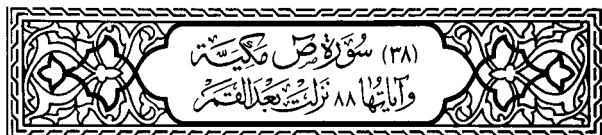 (٣٨) سُورَة صۤ مَكِيَّة
وَآيَاتُهَا ٨٨ نَزَلَتْ بَعْدَ القَمَر